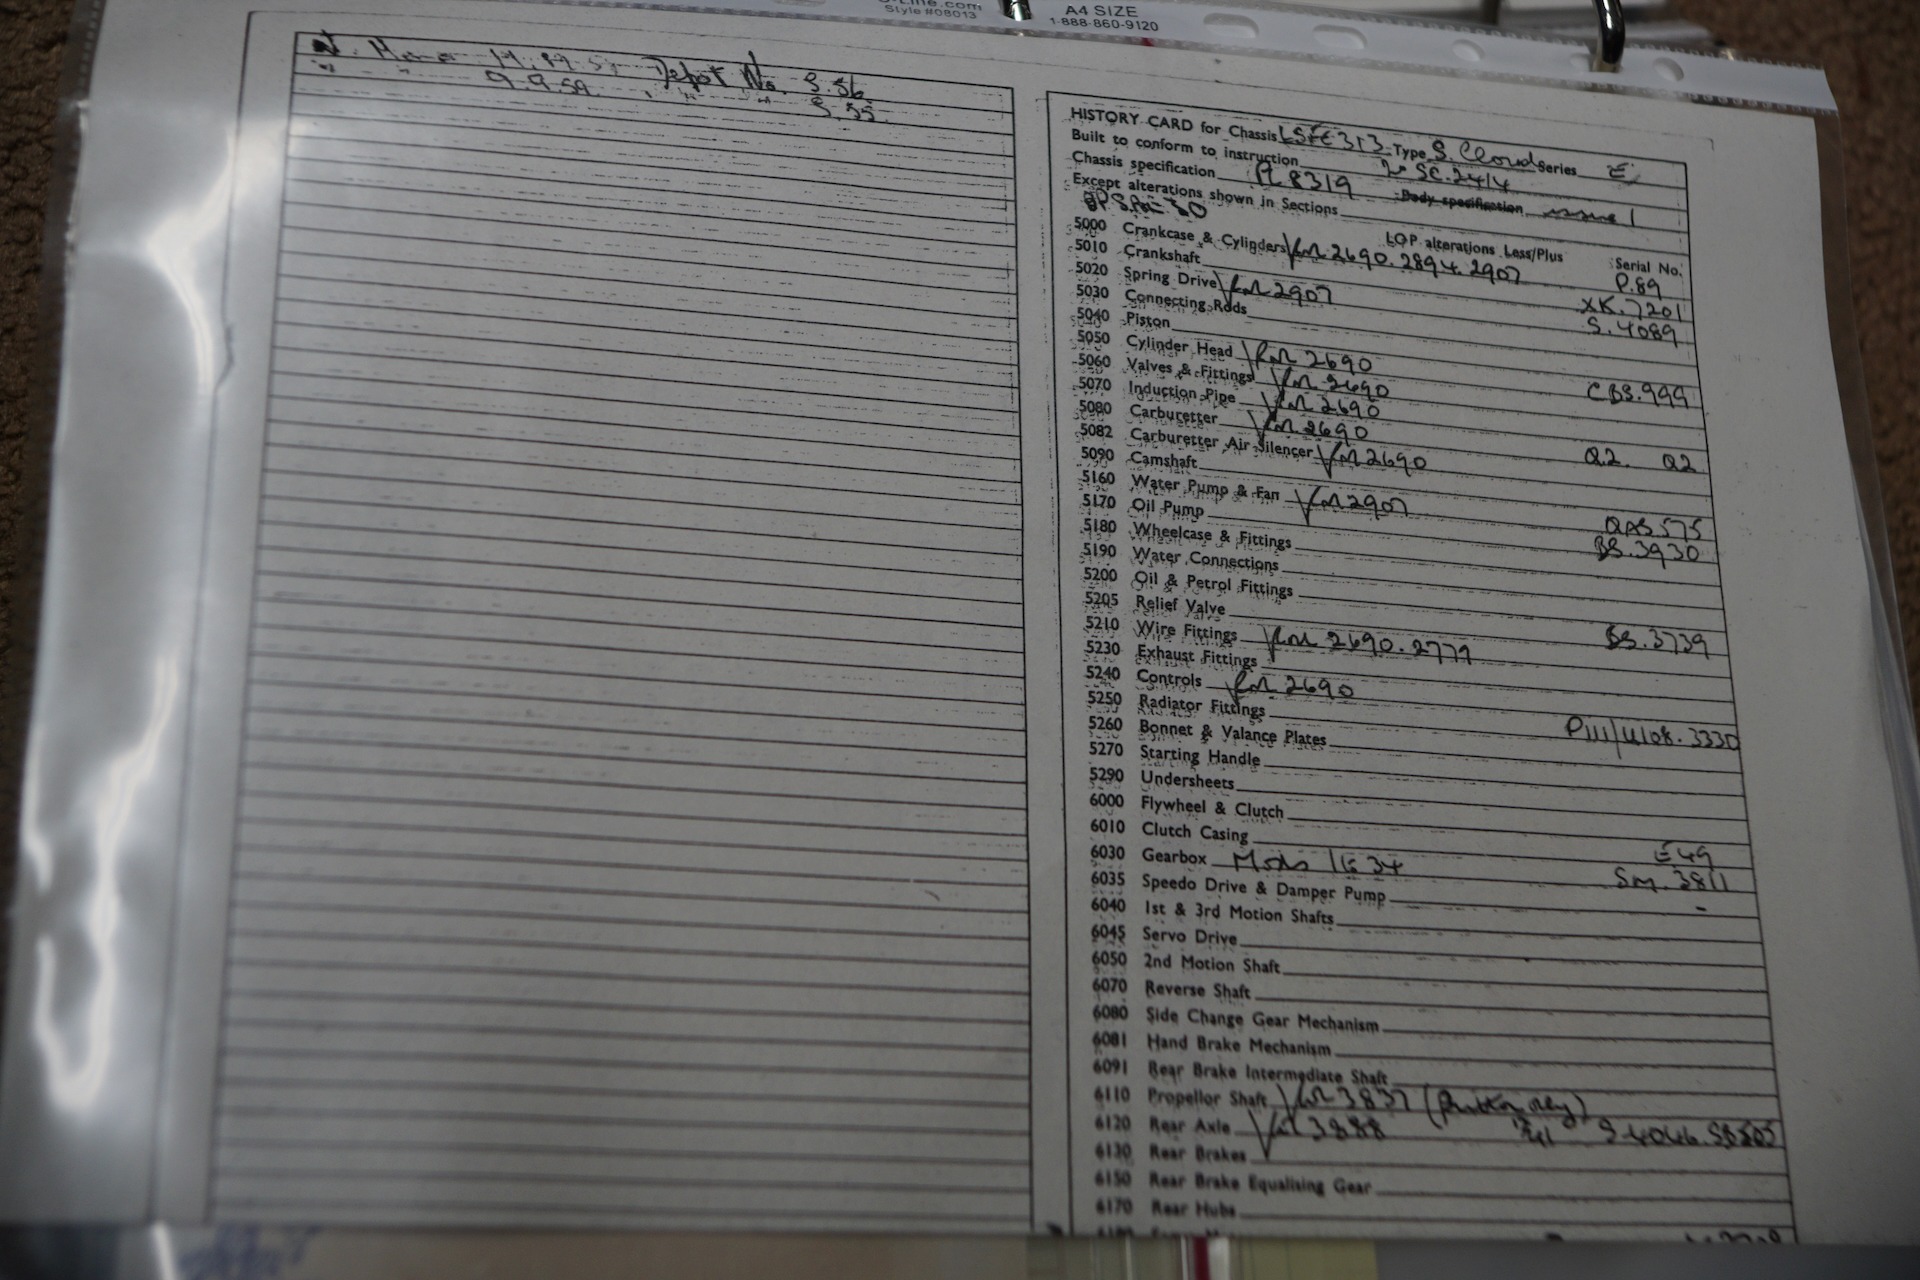 Style #08013
A4 SIZE
1-888-860-9120
9.9.59
Depot No. S.56
S.55
HISTORY CARD for Chassis LSFE313 Type S. Cloud Series E
Built to conform to instruction SC.2414
Chassis specification 8319 Body specification issue 1
Except alterations shown in Sections
LOP alterations Less/Plus Serial No.
5000 Crankcase & Cylinders 2690.2894.2907 P.89
5010 Crankshaft XK.7201
5020 Spring Drive 2907 S.4089
5030 Connecting Rods
5040 Piston
5050 Cylinder Head 2690 CBS.999
5060 Valves & Fittings 2690
5070 Induction Pipe 2690
5080 Carburetter 2690 Q2. Q2
5082 Carburetter Air Silencer 2690
5090 Camshaft
5160 Water Pump & Fan 2907 QAS575
5170 Oil Pump BS.3930
5180 Wheelcase & Fittings
5190 Water Connections
5200 Oil & Petrol Fittings
5205 Relief Valve BS.3739
5210 Wire Fittings 2690.2779
5230 Exhaust Fittings
5240 Controls 2690
5250 Radiator Fittings
5260 Bonnet & Valance Plates
5270 Starting Handle
5290 Undersheets
6000 Flywheel & Clutch
6010 Clutch Casing E49
6030 Gearbox Mods 1634 SM.3811
6035 Speedo Drive & Damper Pump -
6040 1st & 3rd Motion Shafts
6045 Servo Drive
6050 2nd Motion Shaft
6070 Reverse Shaft
6080 Side Change Gear Mechanism
6081 Hand Brake Mechanism
6091 Rear Brake Intermediate Shaft
6110 Propellor Shaft 3837
6120 Rear Axle 3888
6130 Rear Brakes
6150 Rear Brake Equalising Gear
6170 Rear Hubs